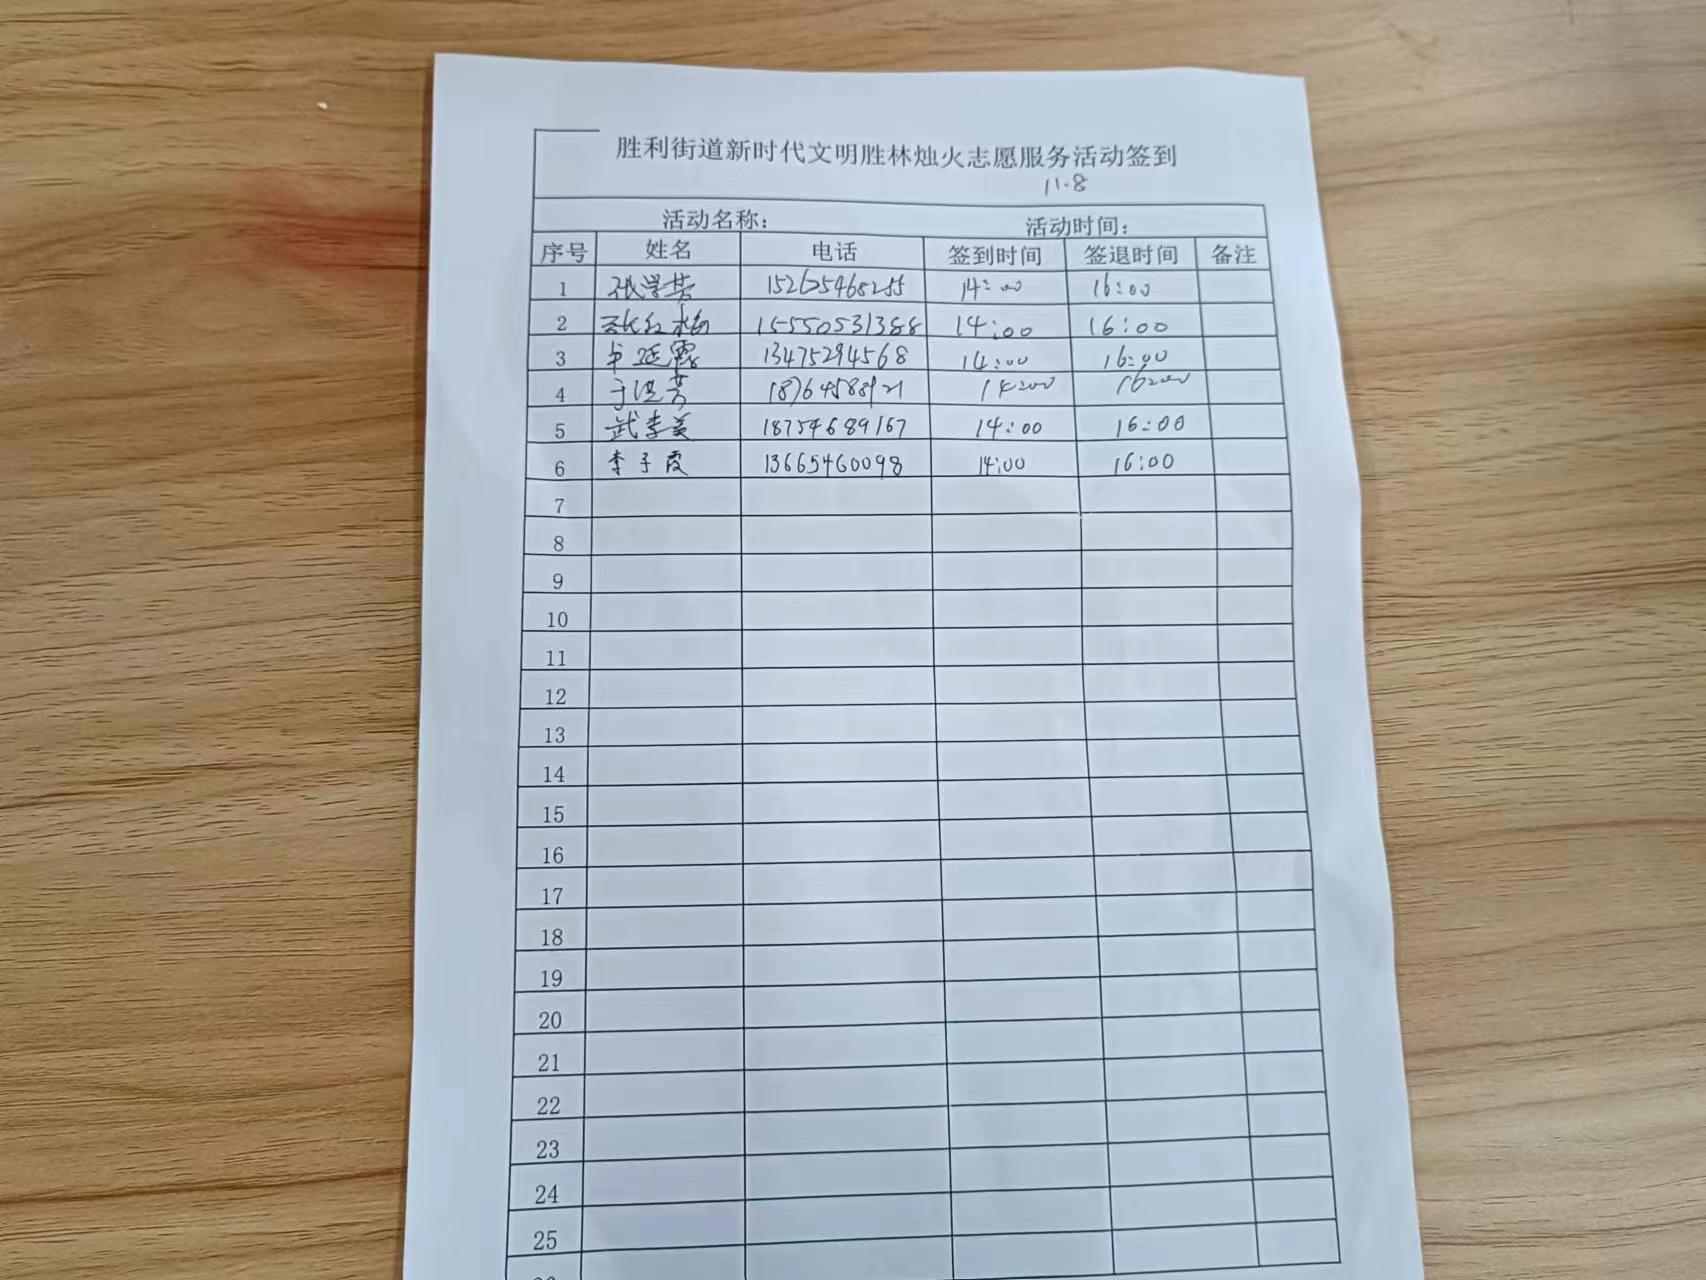 胜利街道新时代文明胜林烛火志愿服务活动签到
11.8
活动名称： 活动时间：
序号 姓名 电话 签到时间 签退时间 备注
1 张学芳 15265468255 14:00 16:00
2 张红梅 15550531388 14:00 16:00
3 延霞 13475294568 14:00 16:00
4 于洪芳 18764588921 14:00 16:00
5 武李美 18754689167 14:00 16:00
6 李子霞 13665460098 14:00 16:00
7
8
9
10
11
12
13
14
15
16
17
18
19
20
21
22
23
24
25